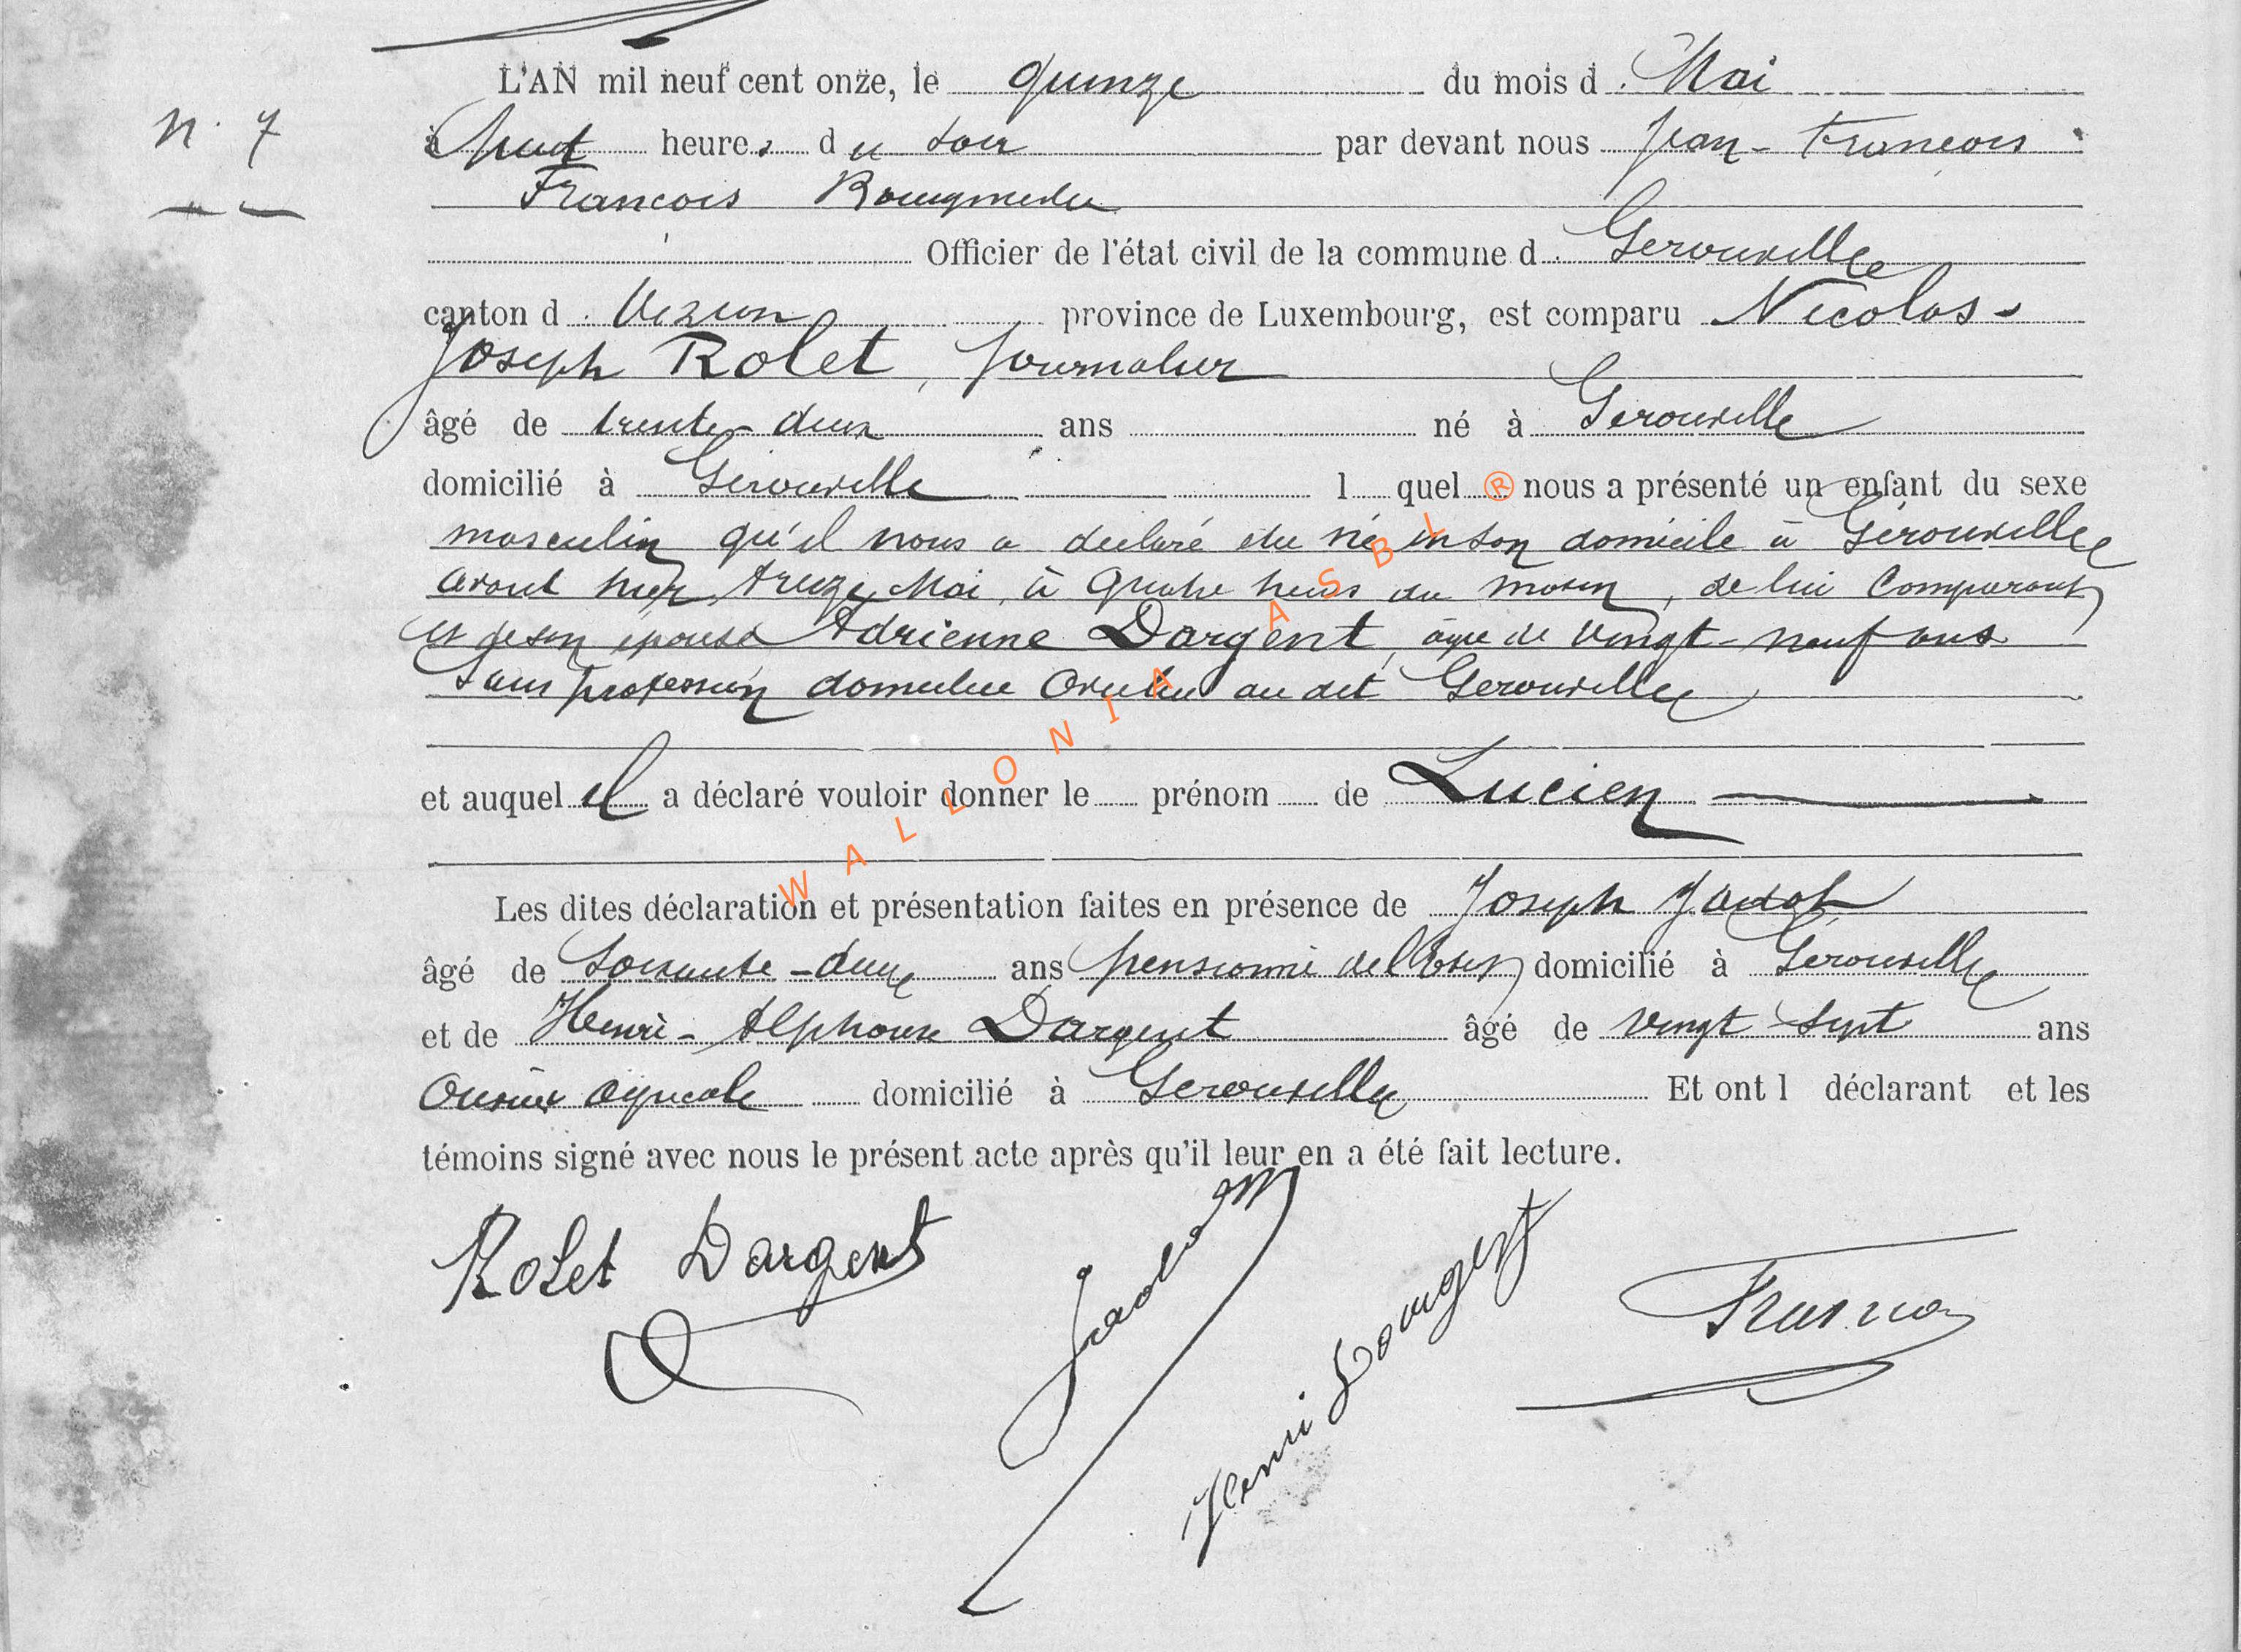 L'AN mil neuf cent onze, le quinze du mois d Mai
N. 7
à huit heures du soir par devant nous Jean-François
François
Officier de l'état civil de la commune d Gerouville
canton d Virton province de Luxembourg, est comparu Nicolas-
Joseph Rolet, journalier
âgé de trente-deux ans né à Gerouville
domicilié à Gérouville l quel nous a présenté un enfant du sexe
masculin qu'il nous a déclaré être né en son domicile à Gérouville
avant hier, treize Mai, à quatre heures du matin, de lui Comparant
et de son épouse Adrienne Dargent, agée de vingt-neuf ans
Sans profession domiciliée au dit Gerouville
et auquel il a déclaré vouloir donner le prénom de Lucien
Les dites déclaration et présentation faites en présence de Joseph Jadot
âgé de soixante-deux ans pensionné de l'Etat domicilié à Gérouville
et de Henri-Alphonse Dargent âgé de vingt-sept ans
Ouvrier agricole domicilié à Gerouville Et ont l déclarant et les
témoins signé avec nous le présent acte après qu'il leur en a été fait lecture.
Rolet Dargent
Jadot
Henri Dargent
WALLONIA ASBL ®